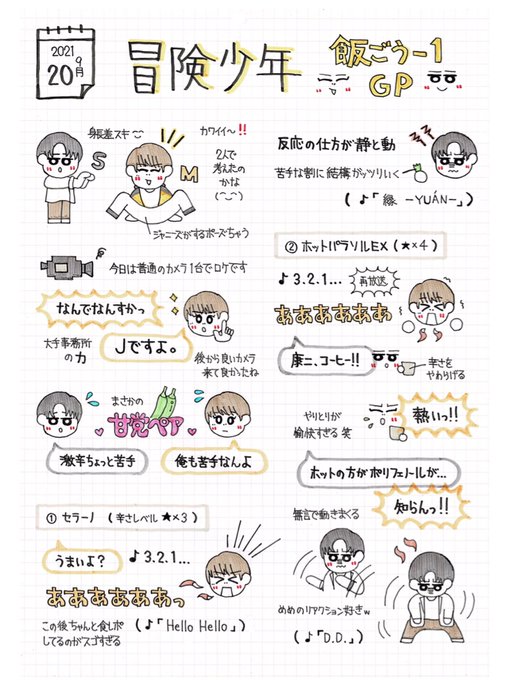 2021
9月
20
冒険少年
飯ごうー1
GP
身長差スキ
カワイイ〜!!
S
M
2人で
考えたの
かな
ジャニーズがするポーズちゃう
今日は普通のカメラ1台でロケです
なんでなんすかっ
大手事務所
の力
Jですよ。
後から良いカメラ
来て良かったね
まさかの
甘党ペア
激辛ちょっと苦手
俺も苦手なんよ
① セラーノ (辛さレベル ★×3)
うまいよ?
♪3.2.1...
あああああああっ
この後ちゃんと食レポ
してるのがスゴすぎる
(♪「Hello Hello」)
反応の仕方が静と動
苦手な割に結構ガッツリいく
(♪「縁 -YUÁN-」)
② ホットパラソルEX (★×4)
♪3.2.1...
再放送
あああああああ
康二、コーヒー!!
辛さを
やわらげる
やりとりが
愉快すぎる 笑
熱いっ!!
ホットの方がポリフェノールが...
知らんっ!!
無言で動きまくる
めめのリアクション好きw
(♪「D.D.」)